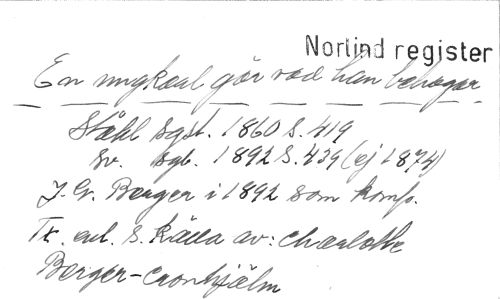 Norlind register
En ungkarl gör vad han behagar
Ståhl sgst. 1860 S. 419
Sv. sgb. 1892 S. 439 (ej 1874)
J. G. Berger i 1892 som komp.
Tx. enl. s. källa av: Charlotte
Berger-Cronhjälm